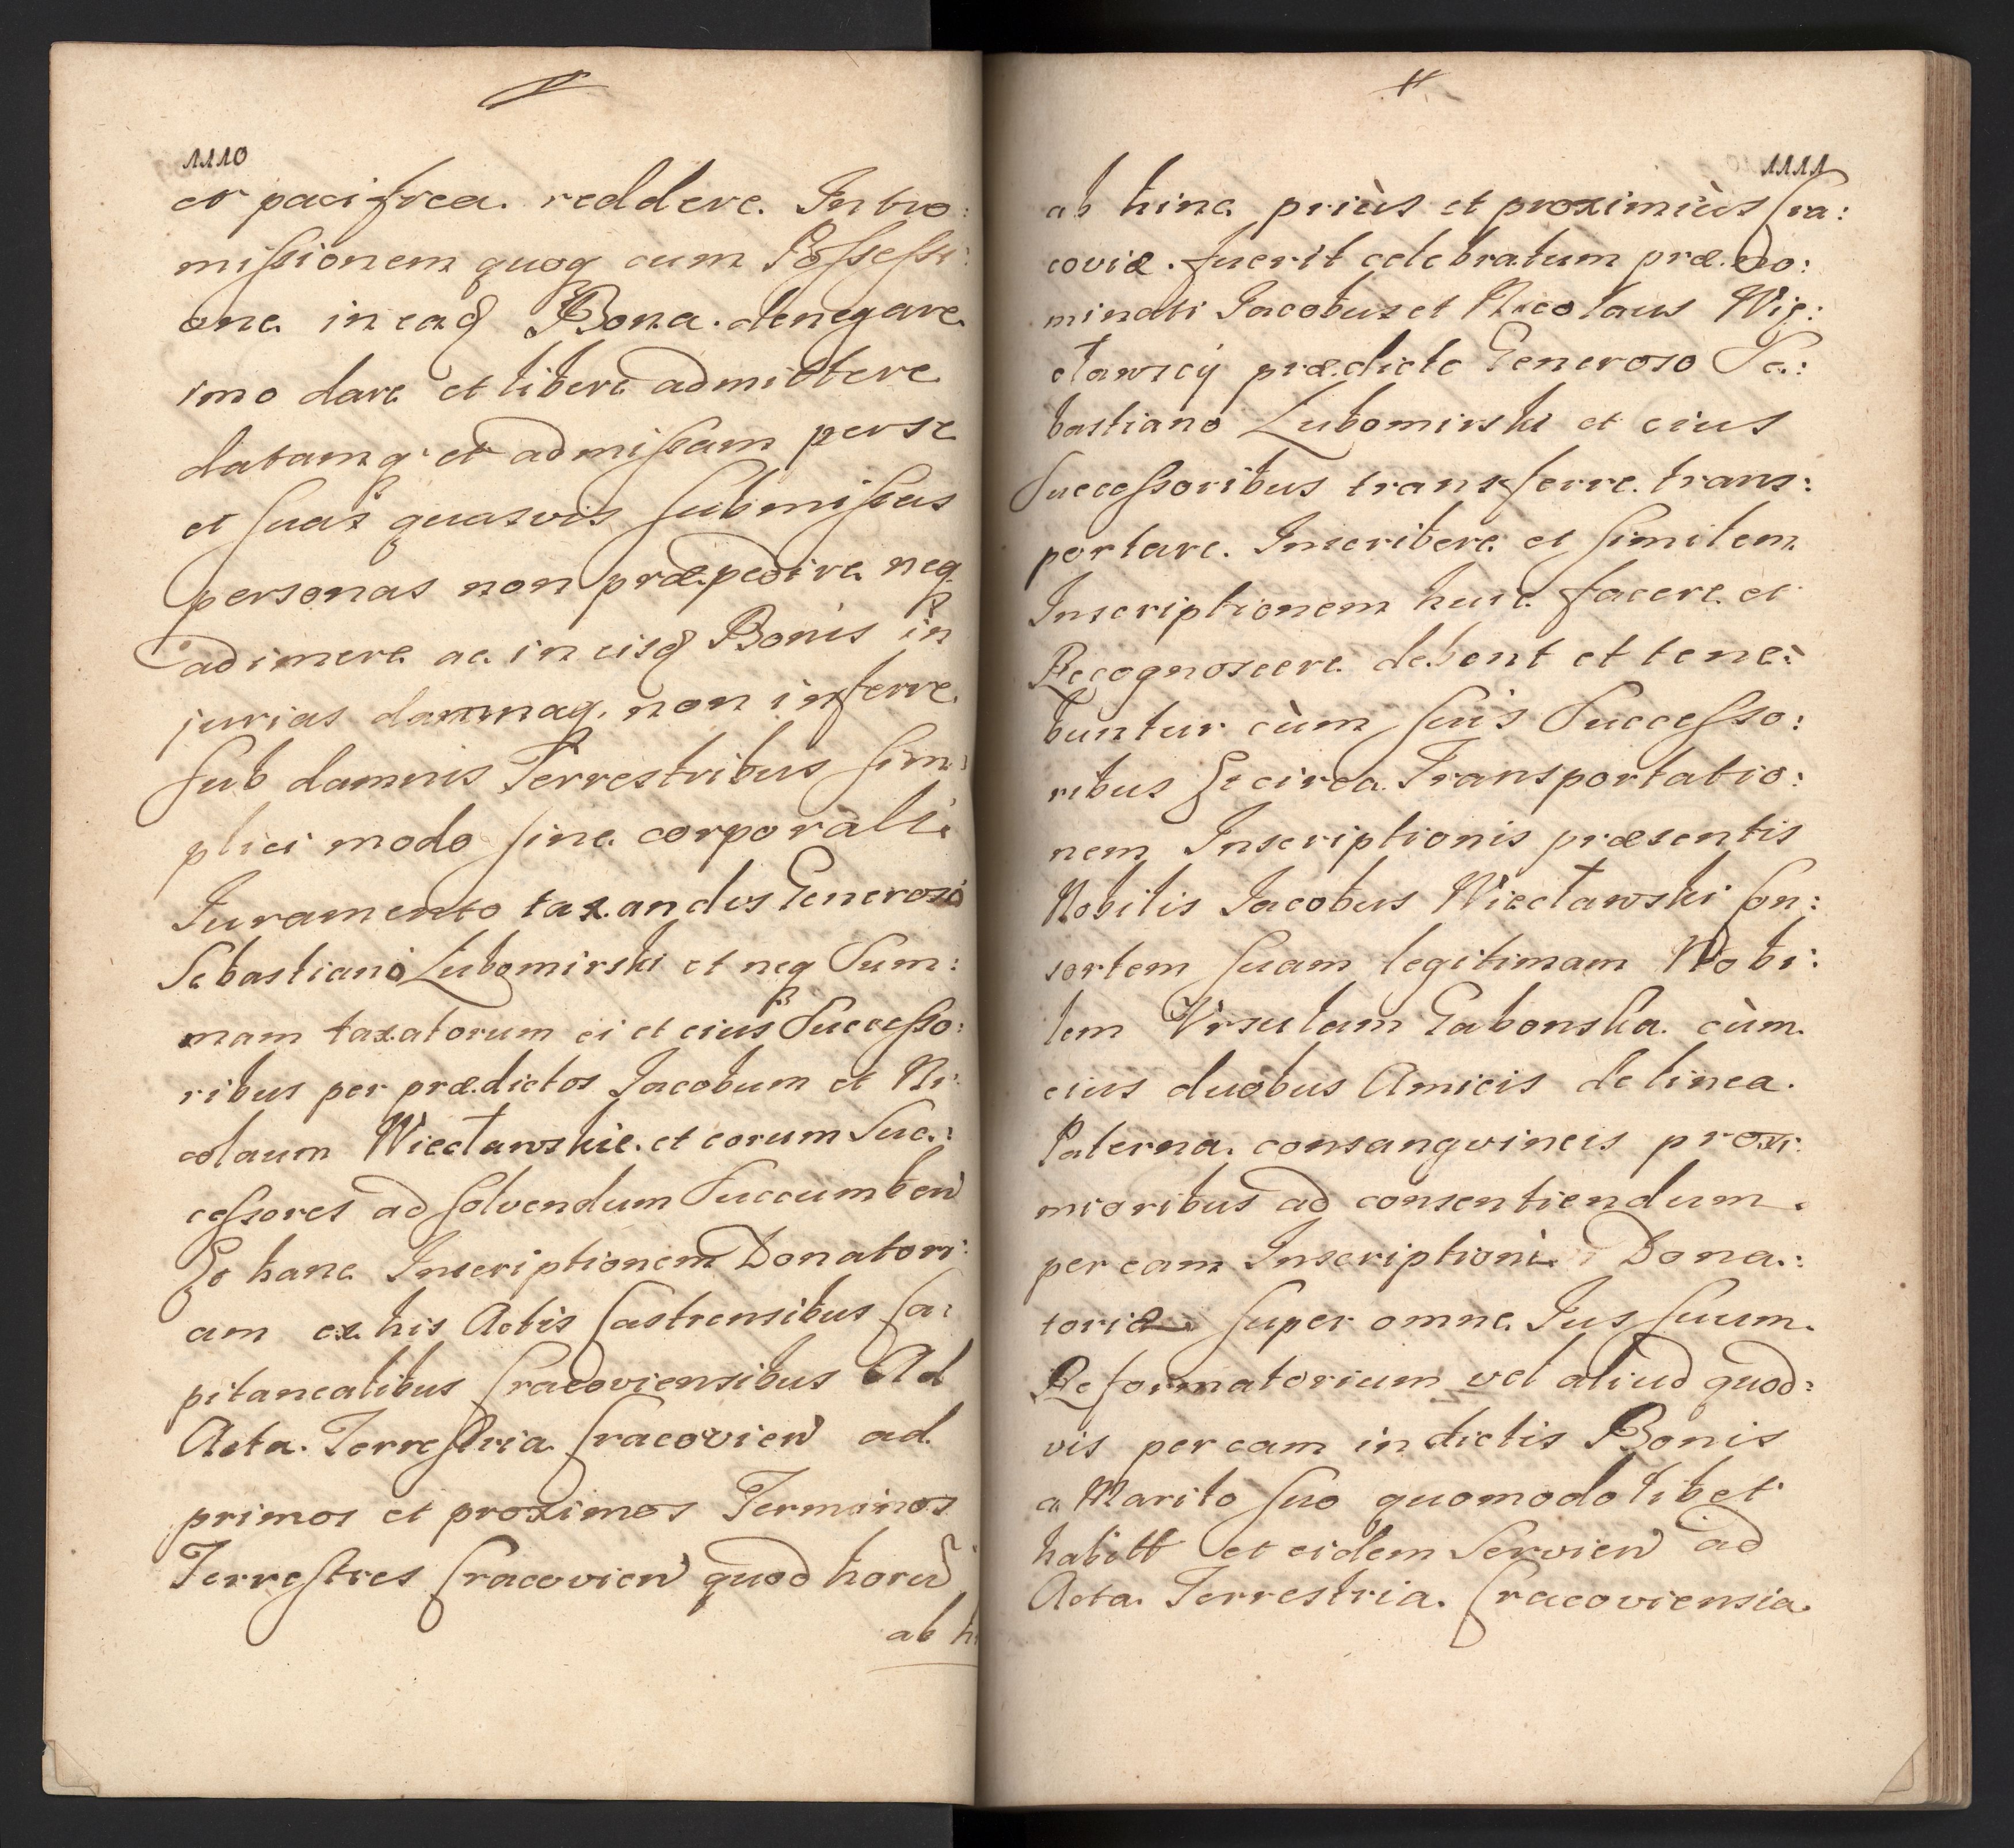 1110
et pacifica reddere. Intro:
missionem quoq cum Possessi:
one in eaq Bona denegare
imo dare et libere admittere
datamq et admissam per se
et suas quasvis submissas
personas non præpedire neq
adimere ac in eisq Bonis in
jurias damnaq. non inferre
sub damnis Terrestribus sim:
plici modo sine corporali
Juramento taxandis Generoso
Sebastiano Lubomirski et neq Sum:
mam taxatorum ei et eius Successo:
ribus per prædictos Jacobum et Ni:
colaum Wiecławskie et eorum Suc:
cessores ad solvendum Succumben
Et hanc Inscriptionem Donatori:
am ex his Actis Castrensibus Ca:
pitanealibus Cracoviensibus Ad
Acta Terrestria Cracovien ad
primos et proximos Terminos
Terrestres Cracovien quod horu
ab hi
1111
ab hinc priùs et proximiùs Cra:
coviæ fuerit celebratum præno:
minati Jacobus et Nicolaus Wie:
cławscÿ prædicto Generoso Se:
bastiano Lubomirski et eius
Successoribus transferre trans:
portare. Inscribere et similem
Inscriptionem huic facere et
Recognoscere debent et tene:
buntur cùm suis Successo:
ribus Et circa Transportatio:
nem Inscriptionis præsentis
Nobilis Jacobus Wiecławski Con:
sortem suam legitimam Nobi:
lem Vrsulam Gabonska cùm
eius duobus Amicis de linea
Paterna consangvineis proxi:
mioribus ad consentiendum
per eam Inscriptioni Dona:
toriæ super omne Jus suum
Reformatorium vel aliud quod:
vis per eam in dictis Bonis
a Marito suo quomodolibet
habitt et eidem Servien ad
Acta Terrestria Cracoviensia